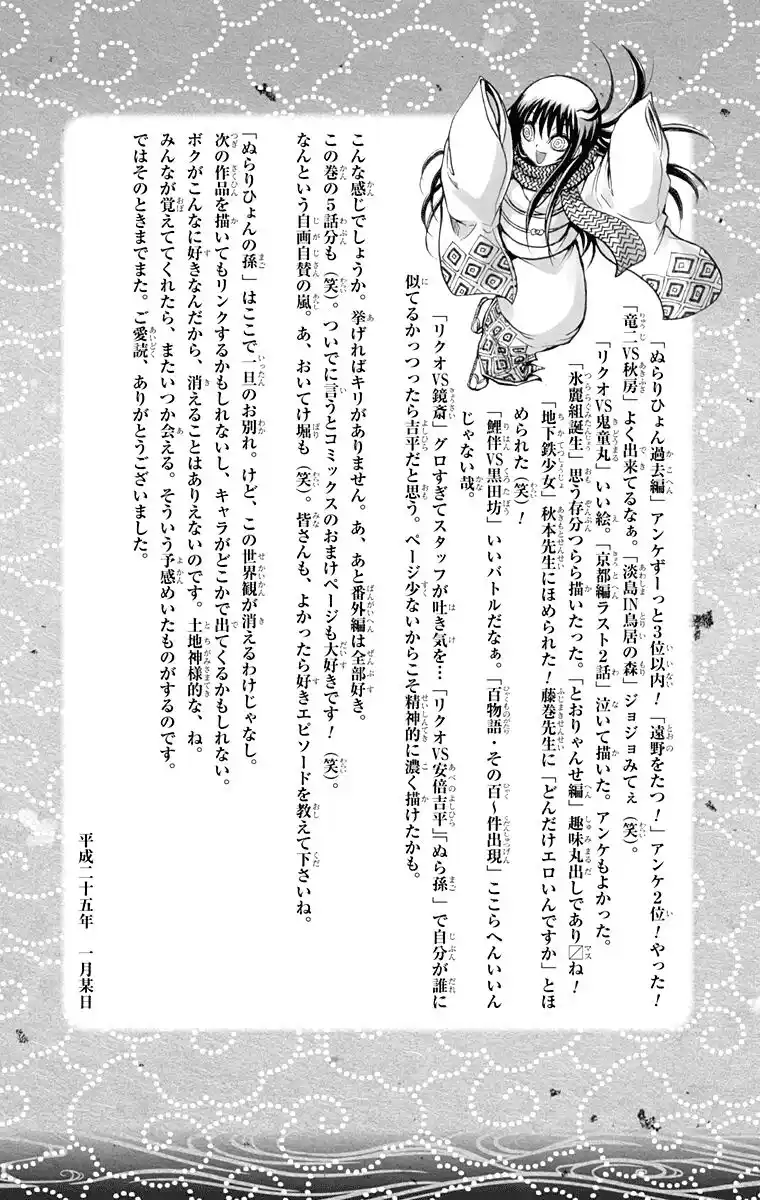 「ぬらりひょん過去編」アンケずーっと3位以内！「遠野をたつ！」アンケ2位！やった！
「竜二VS秋房」よく出来てるなぁ。「淡島IN鳥居の森」ジョジョみてぇ（笑）。
「リクオVS鬼童丸」いい絵。「京都編ラスト2話」泣いて描いた。アンケもよかった。
「氷麗組誕生」思う存分つらら描いたった。「とおりゃんせ編」趣味丸出しであり〼ね！
「地下鉄少女」秋本先生にほめられた！藤巻先生に「どんだけエロいんですか」とほ
められた（笑）！
「鯉伴VS黒田坊」いいバトルだなぁ。「百物語・その百～件出現」ここらへんいいん
じゃない哉。
「リクオVS鏡斎」グロすぎてスタッフが吐き気を…「リクオVS安倍吉平」『ぬら孫」で自分が誰に
似てるかっつったら吉平だと思う。ページ少ないからこそ精神的に濃く描けたかも。
こんな感じでしょうか。挙げればキリがありません。あ、あと番外編は全部好き。
この巻の5話分も（笑）。ついでに言うとコミックスのおまけページも大好きです！（笑）。
なんという自画自賛の嵐。あ、おいてけ堀も（笑）。皆さんも、よかったら好きエピソードを教えて下さいね。
「ぬらりひょんの孫」はここで一旦のお別れ。けど、この世界観が消えるわけじゃなし。
次の作品を描いてもリンクするかもしれないし、キャラがどこかで出てくるかもしれない。
ボクがこんなに好きなんだから、消えることはありえないのです。土地神様的な、ね。
みんなが覚えててくれたら、またいつか会える。そういう予感めいたものがするのです。
ではそのときまでまた。ご愛読、ありがとうございました。
平成二十五年　一月某日